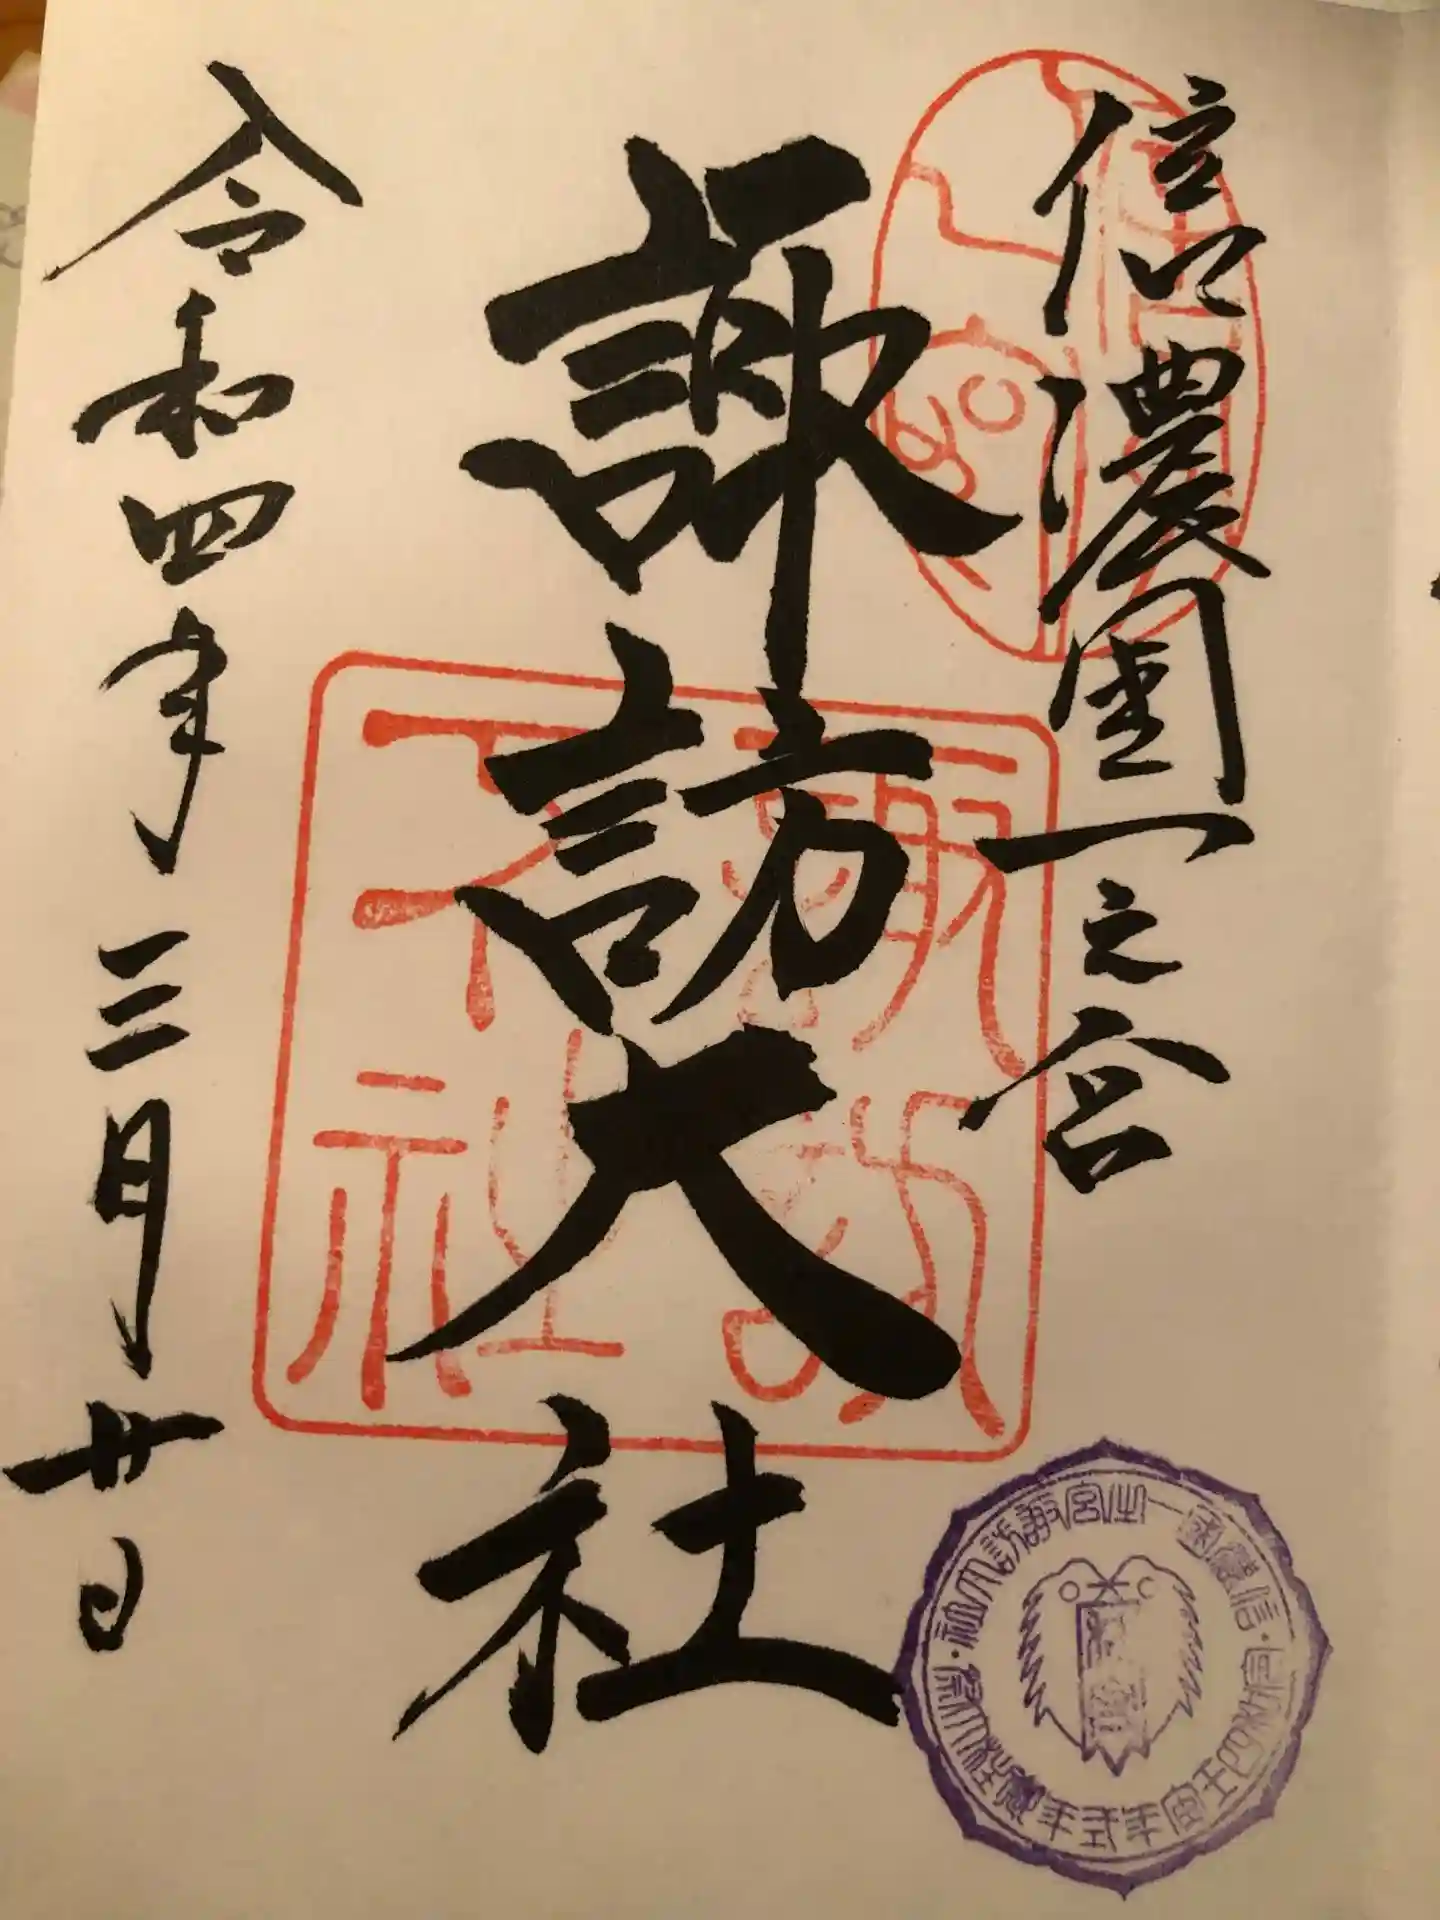 信濃國一之宮
諏訪大社
令和四年三月廿日
諏訪下社
信濃國一之宮諏訪大社